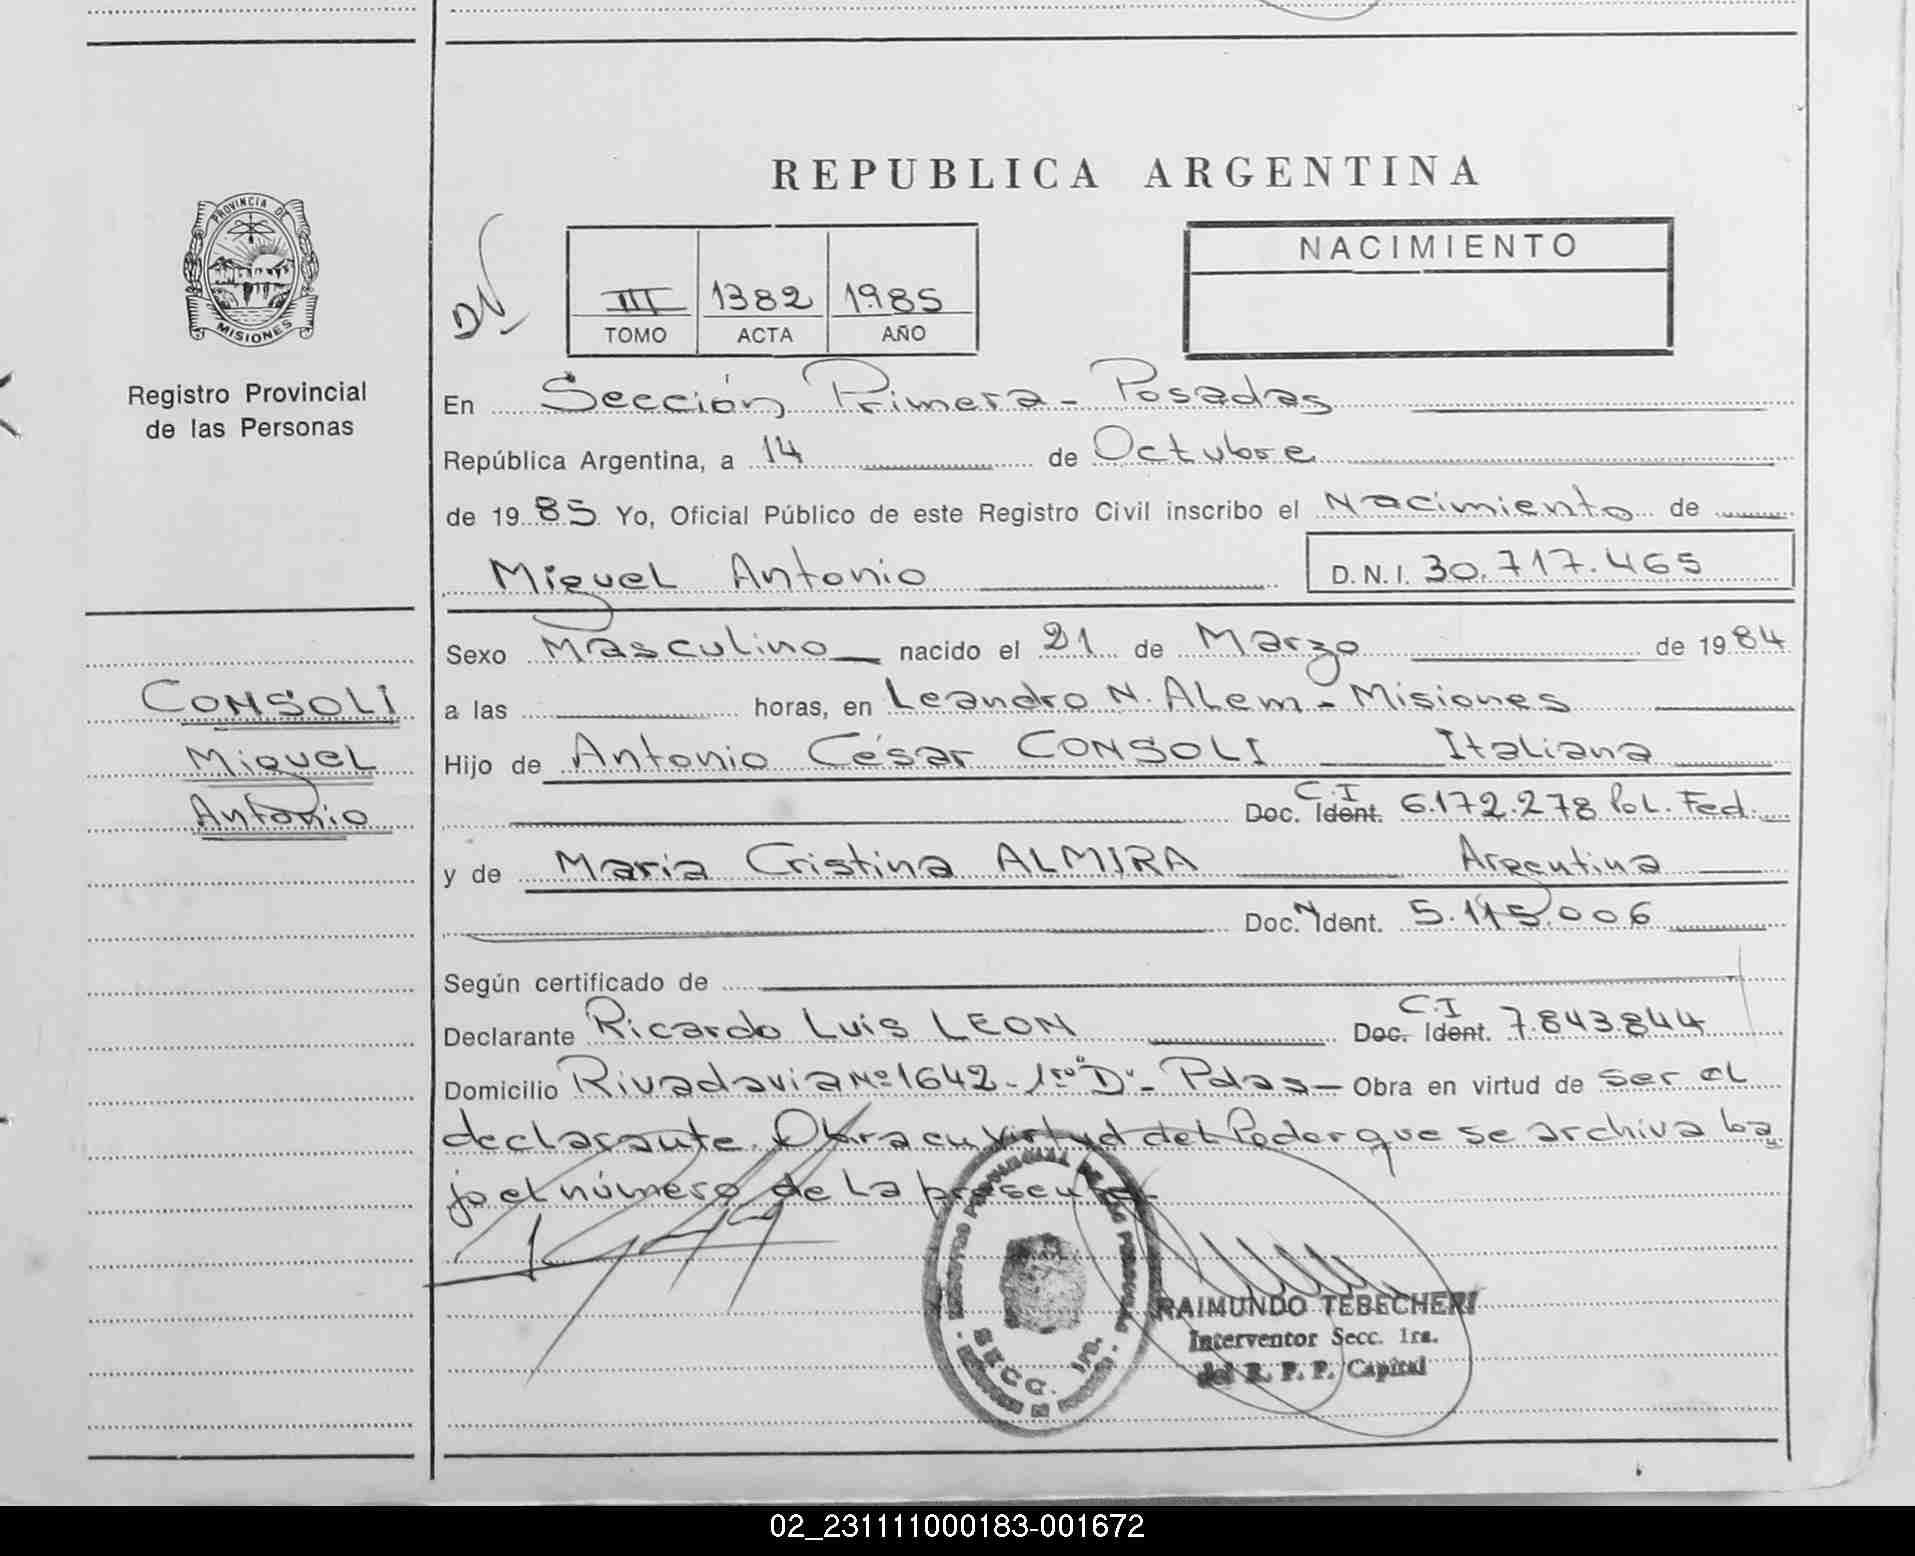 REPUBLICA ARGENTINA
PROVINCIA DE
MISIONES
Registro Provincial
de las Personas
III 1382 1985
TOMO ACTA AÑO
NACIMIENTO
En Sección Primera - Posadas
República Argentina, a 14 de Octubre
de 1985 Yo, Oficial Público de este Registro Civil inscribo el Nacimiento de
Miguel Antonio D.N.I. 30.717.465
Sexo Masculino nacido el 21 de Marzo de 1984
CONSOLI
Miguel
Antonio
a las horas, en Leandro N. ALem - Misiones
Hijo de Antonio César CONSOLI Italiana
C.I
Doc. Ident. 6.172.278 PoL. Fed.
y de Maria Cristina ALMIRA Argentina
Doc. N Ident. 5.115.006
Según certificado de
C.I
Declarante Ricardo Luis LEON Doc. Ident. 7.843.844
Domicilio Rivadavia Nº 1642 - 1ro "D" - Pdas - Obra en virtud de ser el
declarante. Obra en virtud del Poder que se archiva ba
jo el número de la presente.
SECC. 1ra.
RAIMUNDO TEBECHERI
Interventor Secc. 1ra.
del R. P. P. Capital
02_231111000183-001672